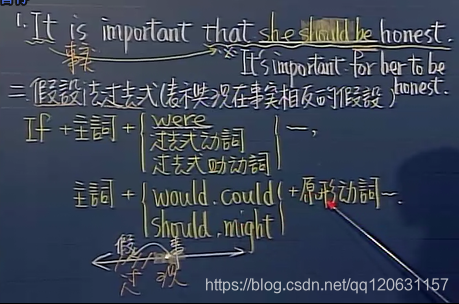 1. It is important that she should be honest.
事実
It's important for her to be
honest.
二.假設法过去式(表示與現在事实相反的假設)
If + 主詞 + { were
过去式动詞
过去式助动詞 } —,
主詞 + { would. could
should. might } + 原形动詞~.
假 事
过 現
https://blog.csdn.net/qq120631157